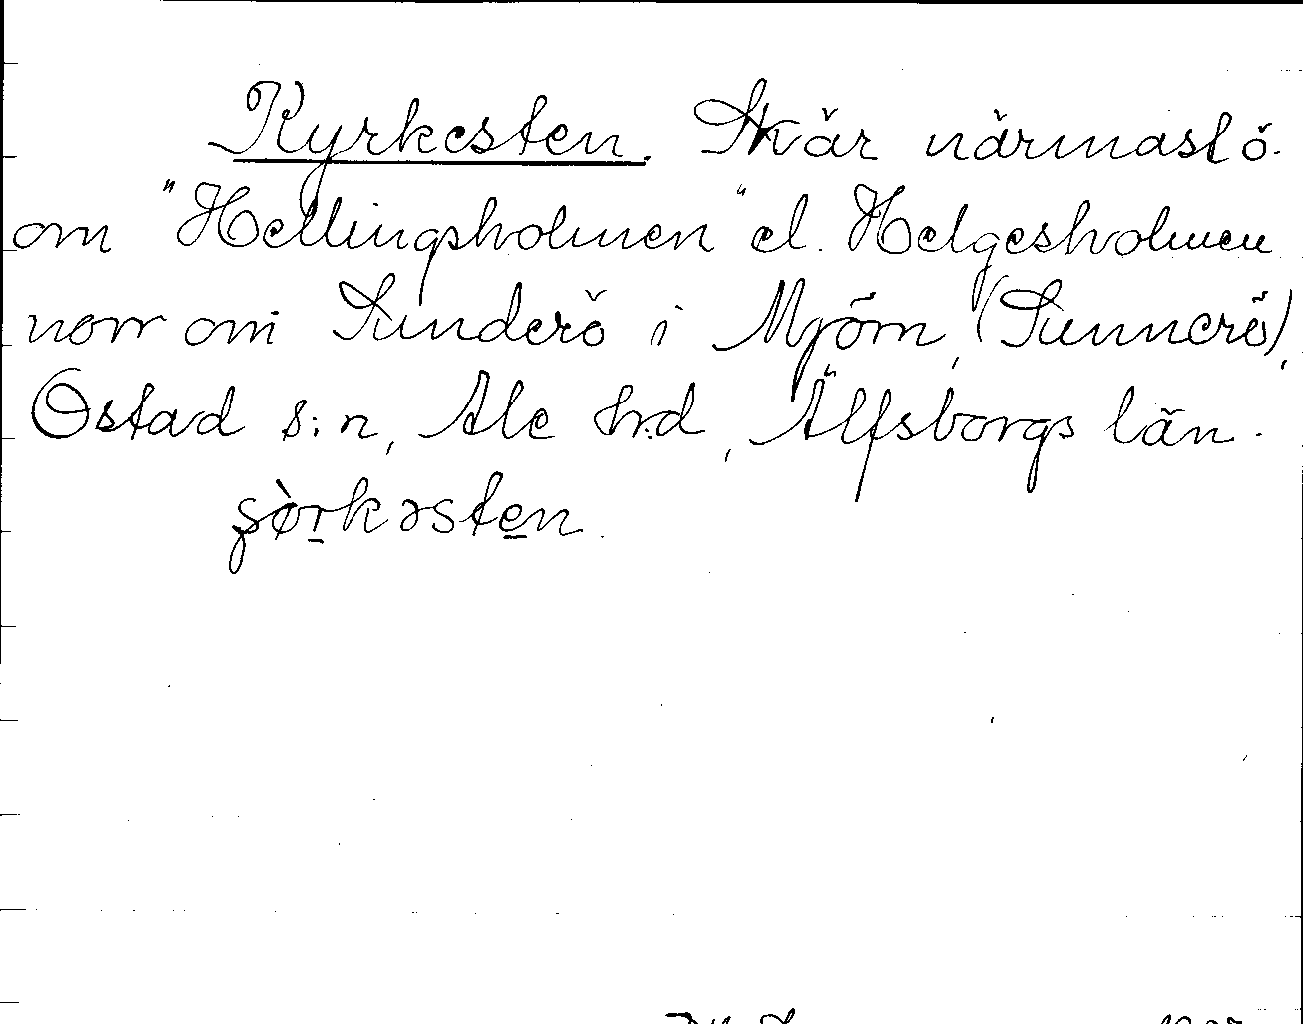 Kyrkesten. Skär närmast ö.
om "Hellingsholmen" el. Helgesholmen
norr om Sunderö i Mjörn, (Sunnerö),
Östad s:n, Ale h:d, Älfsborgs län.
ʂø̀rkəsten.